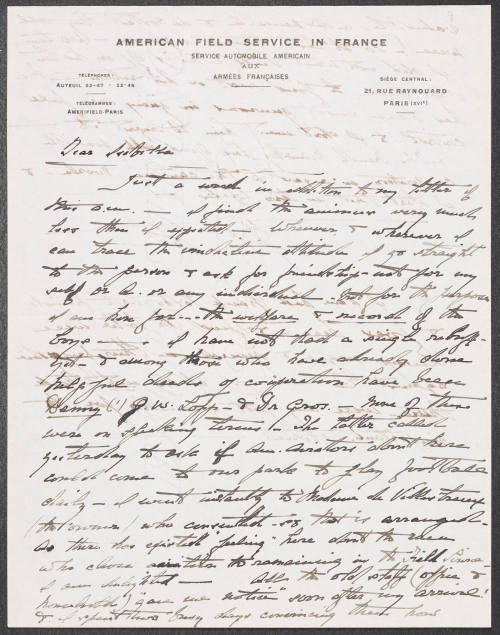 AMERICAN FIELD SERVICE IN FRANCE
SERVICE AUTOMOBILE AMERICAIN
AUX
ARMÉES FRANÇAISES
TÉLÉPHONE:
AUTEUIL
TÉLÉGRAMME:
AMERIFIELD-PARIS
SIÈGE CENTRAL:
21, RUE RAYNOUARD
PARIS (XVIe)
Dear
Just a word in addition to my letter of
this a.m. — I find the animus very much
less than I expected — whenever & wherever I
can trace the vindictive attitude I go straight
to the person & ask for friendship - not for my
self or A. or any individual but for the purpose
I am here for — the welfare & record of the
boys — I have not had a single rebuff
yet - & among those who have already done
helpful deeds of cooperation have been
J. W. Lopp - & Dr Gros. — None of them
were on speaking terms — The latter called
yesterday to ask if Am. aviators about here
could come to our park to play foot ball
daily — I went instantly to Madame de
(the owner) who consented - so that is arranged -
As there has existed "feeling" here about the men
who chose aviation to remaining in the Field Service
I am delighted — All the old staff (office &
household) "gave me notice" soon after my arrival
& I spent two busy days convincing them how